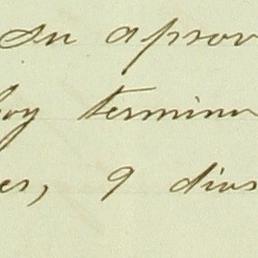 su aprov
oy termino
es, 9 dias